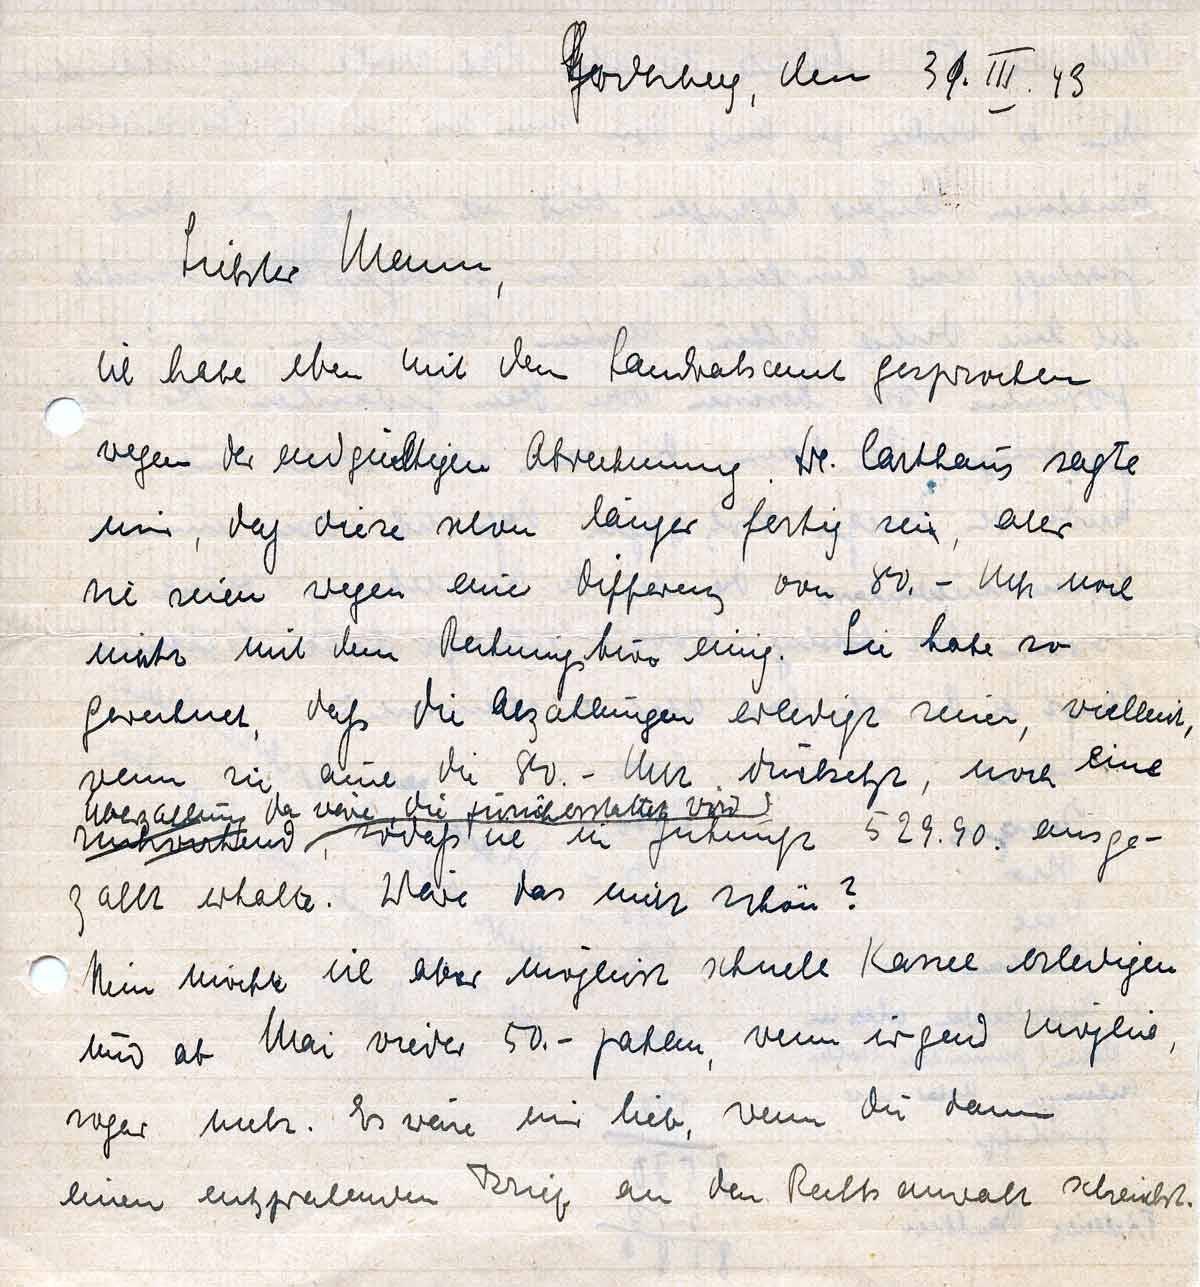 Godesberg, den 31. III. 43
Liebster Mann,
ich habe eben mit dem Landratsamt gesprochen
wegen der endgültigen Abrechnung. Dr. Carthaus sagte
mir, daß diese schon länger fertig sei, aber
sie seien wegen eine Differenz von 80.- Mk noch
nicht mit dem Rechnungsbüro einig. Sie habe so
gerechnet, daß die Abzahlungen erledigt seien, vielleicht,
wenn sie die 80.- Mk durchsetzt, noch eine
Überzahlung da wäre, die zurückerstattet wird
, sodaß ich in Zukunft 529.90. ausge-
zahlt erhalte. Wäre das nicht schön?
Nun möchte ich aber möglichst schnell Kassel erledigen
und ab Mai wieder 50.- zahlen, wenn irgend möglich,
sogar mehr. Es wäre mir lieb, wenn du dann
einen entsprechenden Brief an den Rechtsanwalt schreibst.